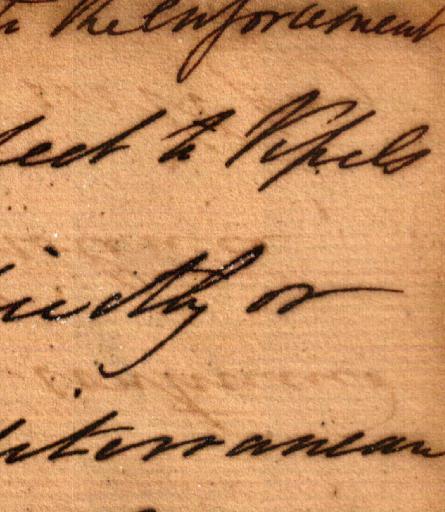 the enforcement
ect to Vessels
irectly or
diterranean